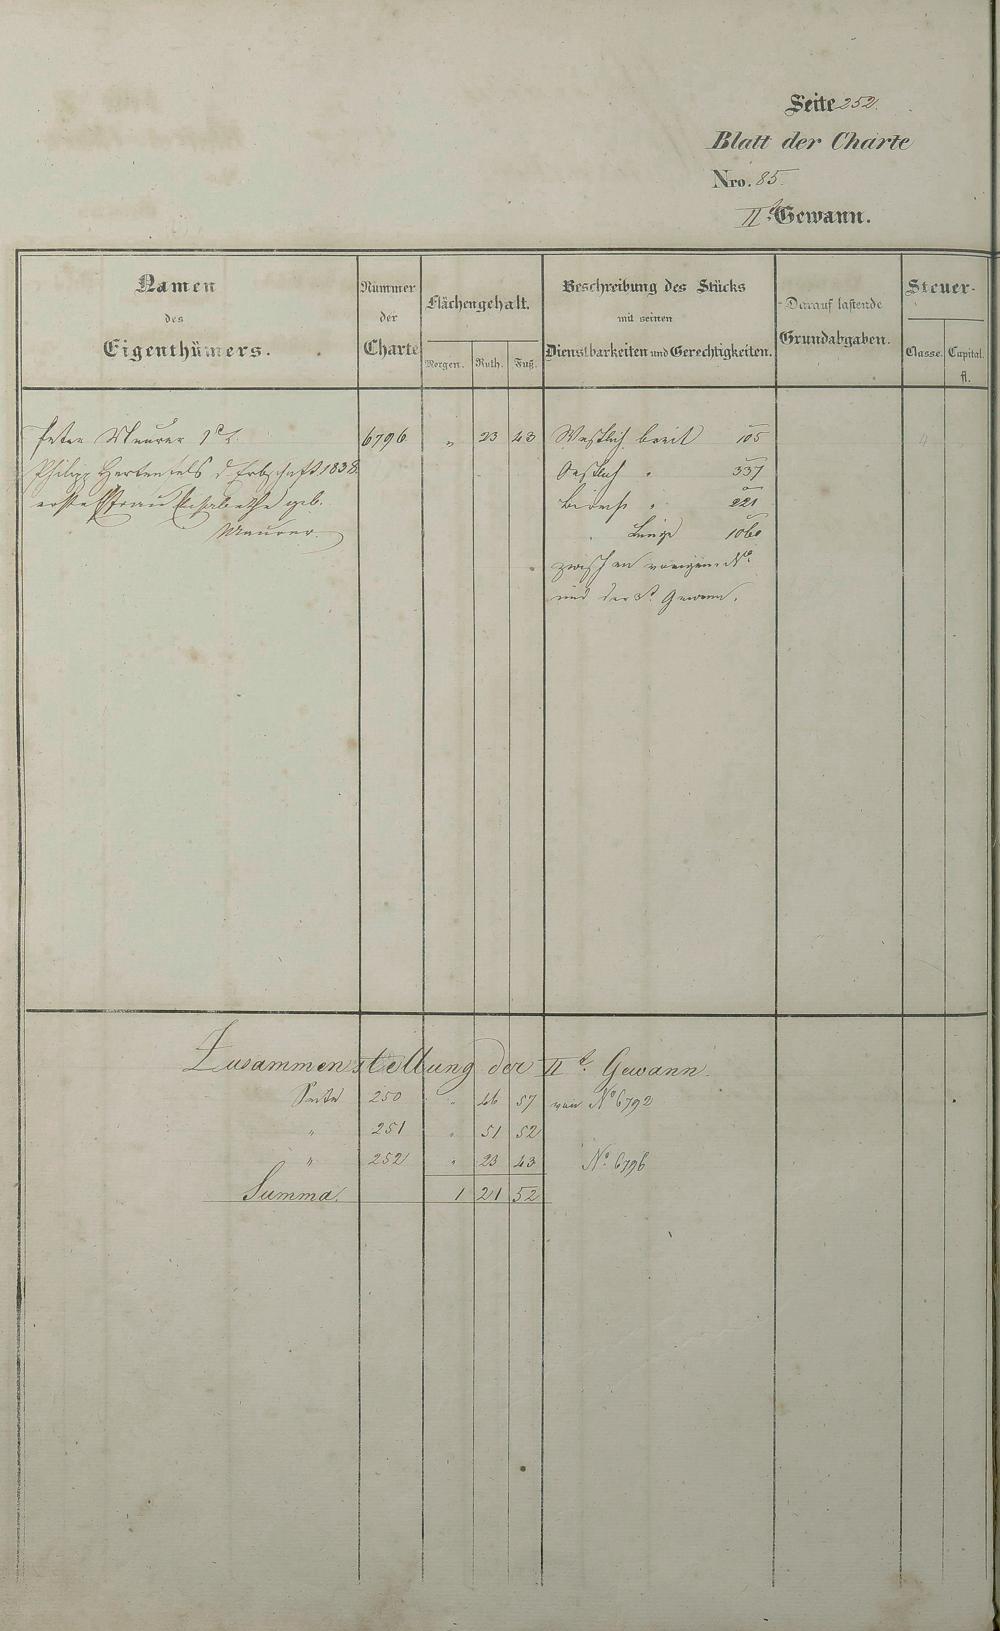 Seite 252.
Blatt der Charte
Nro. 85.
IIte Gewann.
Namen
des
Eigenthümers.
Nummer
der
Charte
Flächengehalt.
Morgen. Ruth. Fuß.
Beschreibung des Stücks
mit seinen
Dienstbarkeiten und Gerechtigkeiten.
Darauf lastende
Grundabgaben.
Steuer-
Classe. Capital.
fl.
Peter Maurer 6796 " 23 43 Westlich breit 105
Philipp Hertenfels d. Erbschaft 1838 Oestlich " 337
erste Ehefrau Elisabetha geb. " 221
Maurer. Länge 1060
zwischen voriger No.
und der Gewann.
Zusammenstellung der IIte. Gewann.
Seite 250 " 46 57 von No 6792
" 251 " 51 52
" 252 " 23 43 No. 6796
Summa. 1 21 52